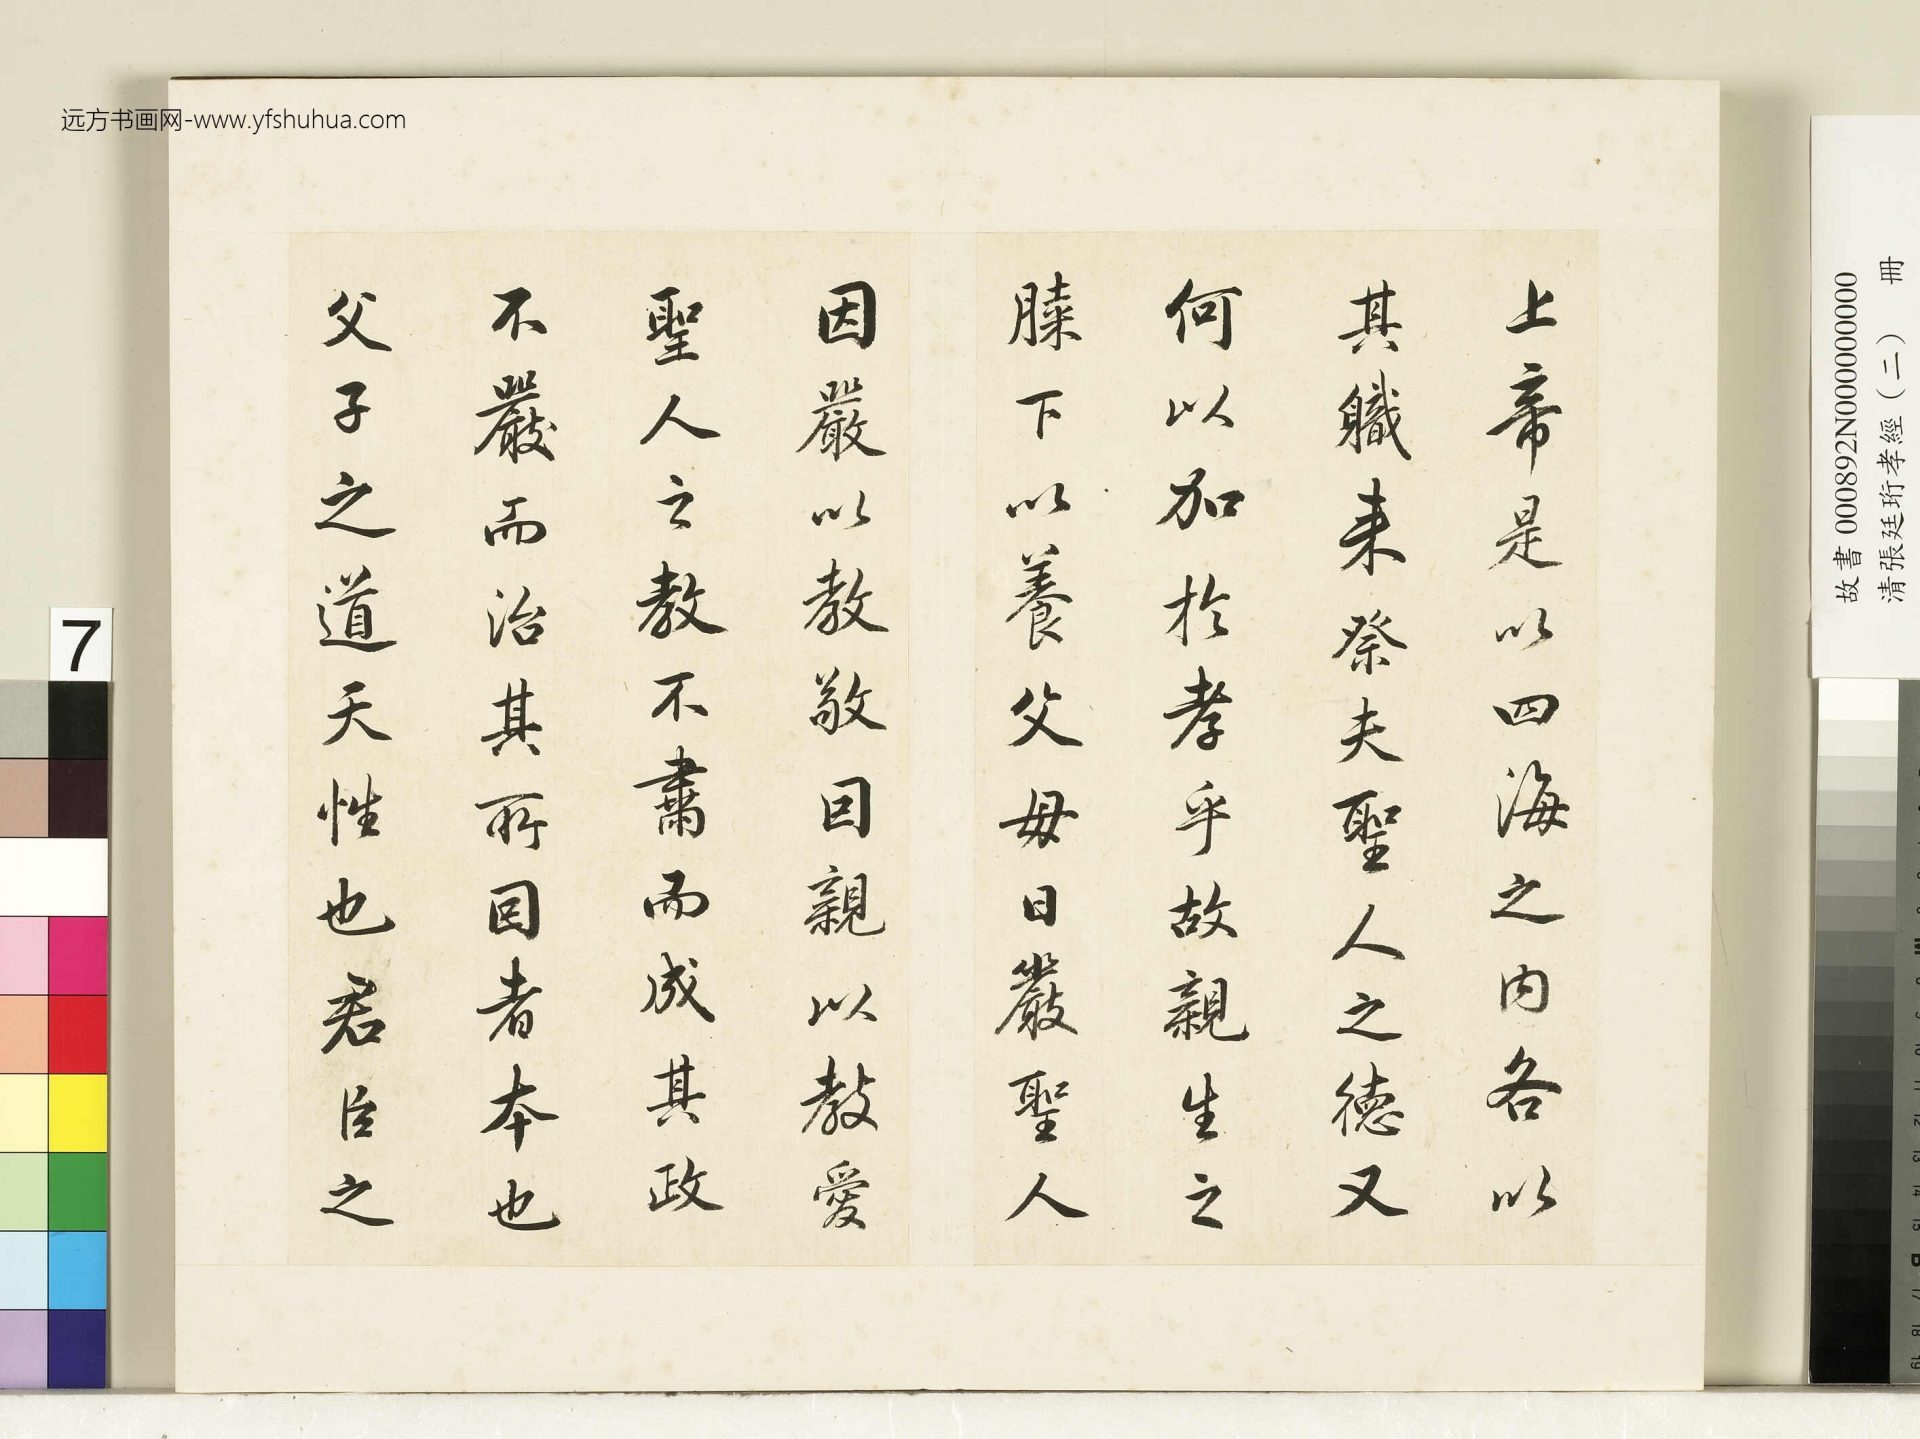 上帝是以四海之内各以
其職来祭夫聖人之德又
何以加於孝乎故親生之
膝下以養父母日嚴聖人
因嚴以教敬因親以教愛
聖人之教不肅而成其政
不嚴而治其所因者本也
父子之道天性也君臣之
远方书画网-www.yfshuhua.com
故書 000892N000000000
清張廷珩孝經（二） 冊
7